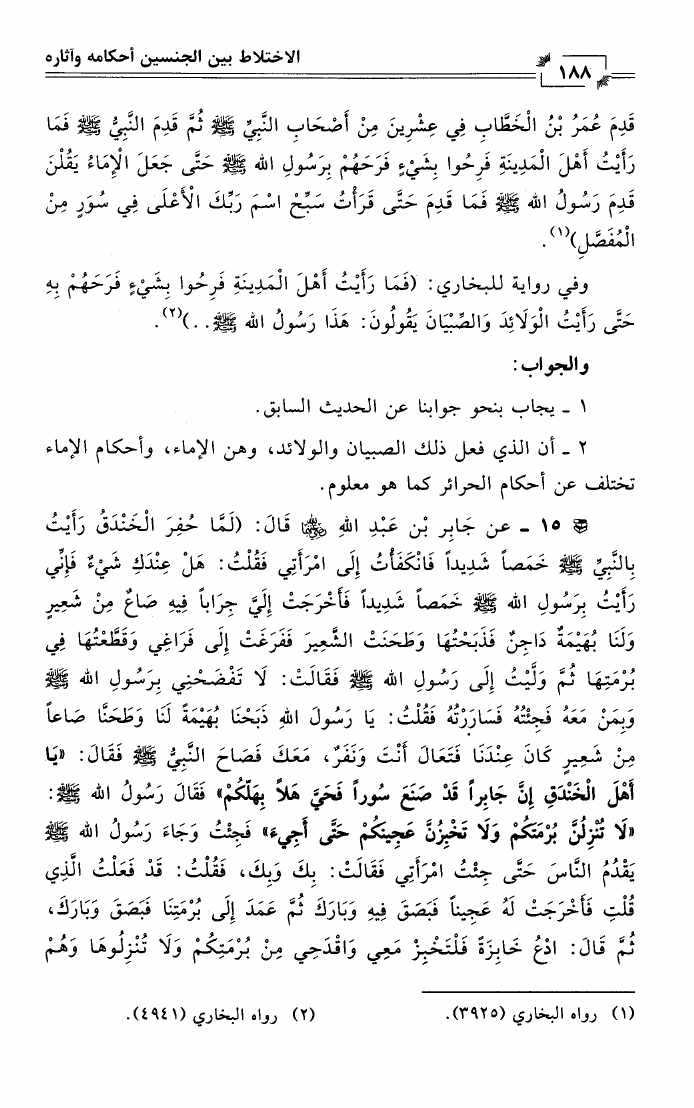 ١٨٨
الاختلاط بين الجنسين أحكامه وآثاره
قَدِمَ عُمَرُ بْنُ الْخَطَّابِ فِي عِشْرِينَ مِنْ أَصْحَابِ النَّبِيِّ ﷺ ثُمَّ قَدِمَ النَّبِيُّ ﷺ فَمَا
رَأَيْتُ أَهْلَ الْمَدِينَةِ فَرِحُوا بِشَيْءٍ فَرَحَهُمْ بِرَسُولِ الله ﷺ حَتَّى جَعَلَ الْإِمَاءُ يَقُلْنَ
قَدِمَ رَسُولُ الله ﷺ فَمَا قَدِمَ حَتَّى قَرَأْتُ سَبِّحْ اسْمَ رَبِّكَ الْأَعْلَى فِي سُوَرٍ مِنْ
الْمُفَصَّلِ)(١).
وفي رواية للبخاري: (فَمَا رَأَيْتُ أَهْلَ الْمَدِينَةِ فَرِحُوا بِشَيْءٍ فَرَحَهُمْ بِهِ
حَتَّى رَأَيْتُ الْوَلَائِدَ وَالصِّبْيَانَ يَقُولُونَ: هَذَا رَسُولُ الله ﷺ..)(٢).
والجواب:
١ ـ يجاب بنحو جوابنا عن الحديث السابق.
٢ ـ أن الذي فعل ذلك الصبيان والولائد، وهن الإماء، وأحكام الإماء
تختلف عن أحكام الحرائر كما هو معلوم.
١٥ ـ عن جَابِر بْن عَبْدِ اللهِ ﵁ قَالَ: (لَمَّا حُفِرَ الْخَنْدَقُ رَأَيْتُ
بِالنَّبِيِّ ﷺ خَمَصاً شَدِيداً فَانْكَفَأْتُ إِلَى امْرَأَتِي فَقُلْتُ: هَلْ عِنْدَكِ شَيْءٌ فَإِنِّي
رَأَيْتُ بِرَسُولِ الله ﷺ خَمَصاً شَدِيداً فَأَخْرَجَتْ إِلَيَّ جِرَاباً فِيهِ صَاعٌ مِنْ شَعِيرٍ
وَلَنَا بُهَيْمَةٌ دَاجِنٌ فَذَبَحْتُهَا وَطَحَنَتْ الشَّعِيرَ فَفَرَغَتْ إِلَى فَرَاغِي وَقَطَّعْتُهَا فِي
بُرْمَتِهَا ثُمَّ وَلَّيْتُ إِلَى رَسُولِ الله ﷺ فَقَالَتْ: لَا تَفْضَحْنِي بِرَسُولِ الله ﷺ
وَبِمَنْ مَعَهُ فَجِئْتُهُ فَسَارَرْتُهُ فَقُلْتُ: يَا رَسُولَ اللهِ ذَبَحْنَا بُهَيْمَةً لَنَا وَطَحَنَّا صَاعاً
مِنْ شَعِيرٍ كَانَ عِنْدَنَا فَتَعَالَ أَنْتَ وَنَفَرٌ، مَعَكَ فَصَاحَ النَّبِيُّ ﷺ فَقَالَ: «يَا
أَهْلَ الْخَنْدَقِ إِنَّ جَابِراً قَدْ صَنَعَ سُوراً فَحَيَّ هَلاً بِهَلّكُمْ» فَقَالَ رَسُولُ الله ﷺ:
«لَا تُنْزِلُنَّ بُرْمَتَكُمْ وَلَا تَخْبِزُنَّ عَجِينَكُمْ حَتَّى أَجِيءَ» فَجِئْتُ وَجَاءَ رَسُولُ الله ﷺ
يَقْدُمُ النَّاسَ حَتَّى جِئْتُ امْرَأَتِي فَقَالَتْ: بِكَ وَبِكَ، فَقُلْتُ: قَدْ فَعَلْتُ الَّذِي
قُلْتِ فَأَخْرَجَتْ لَهُ عَجِيناً فَبَصَقَ فِيهِ وَبَارَكَ ثُمَّ عَمَدَ إِلَى بُرْمَتِنَا فَبَصَقَ وَبَارَكَ،
ثُمَّ قَالَ: ادْعُ خَابِزَةً فَلْتَخْبِزْ مَعِي وَاقْدَحِي مِنْ بُرْمَتِكُمْ وَلَا تُنْزِلُوهَا وَهُمْ
(١) رواه البخاري (٣٩٢٥).
(٢) رواه البخاري (٤٩٤١).